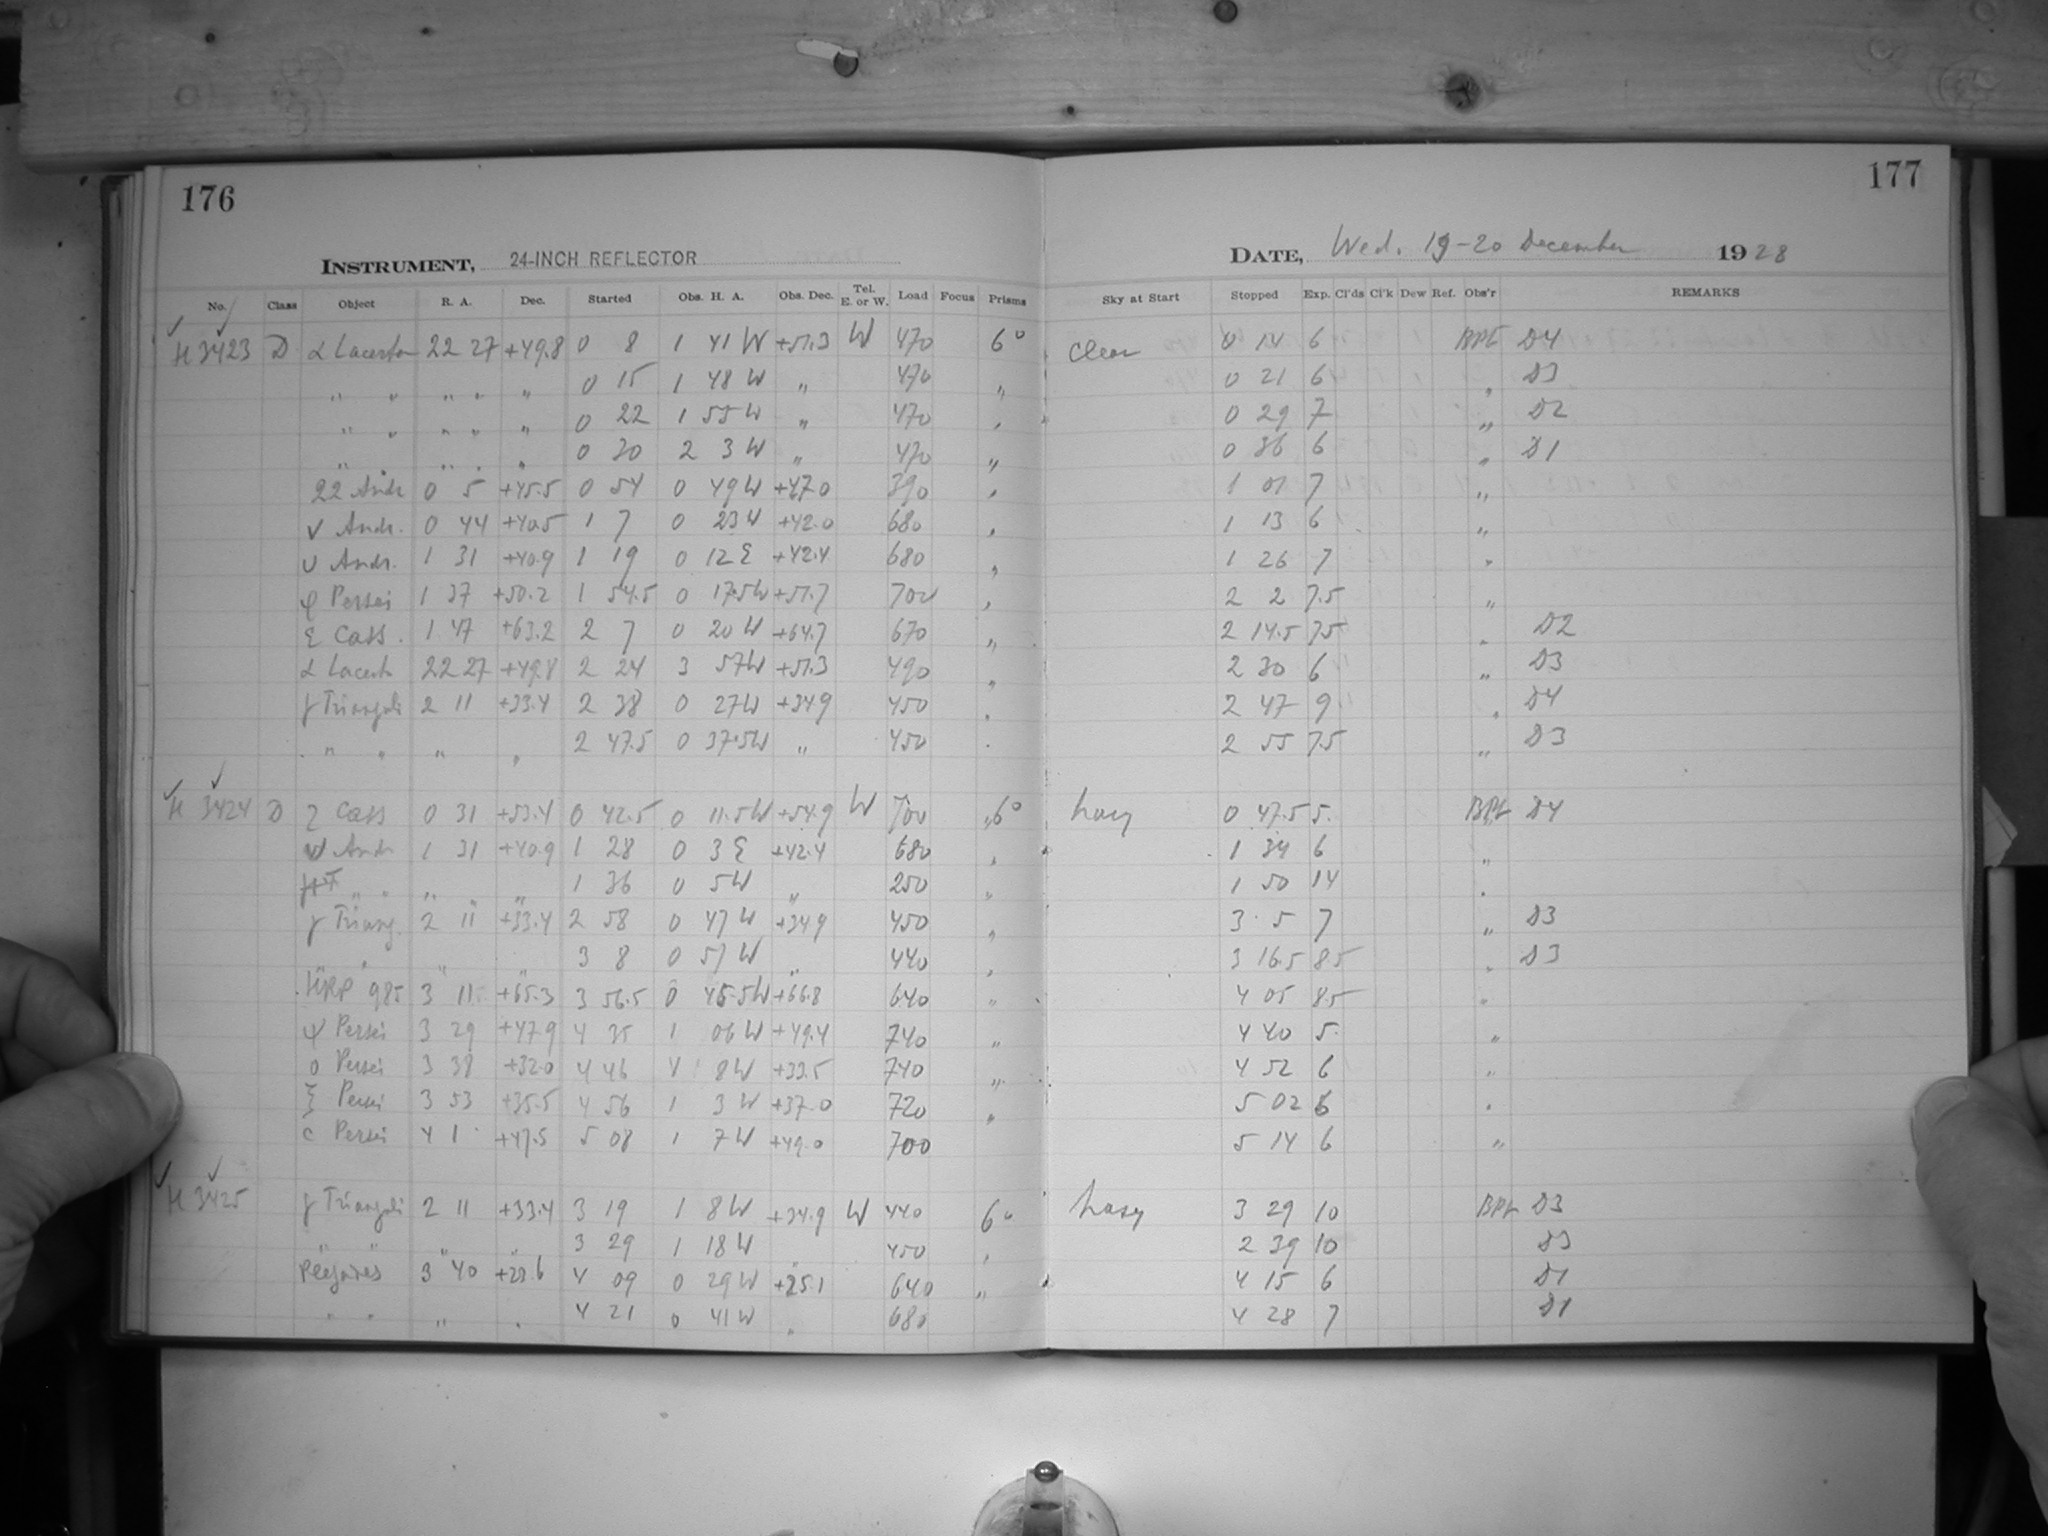 176
177
INSTRUMENT, 24-INCH REFLECTOR DATE, Wed. 19-20 December 1928
No. Class Object R. A. Dec. Started Obs. H. A. Obs. Dec. Tel. E. or W. Load Focus Prisms Sky at Start Stopped Exp. Cl'ds Cl'k Dew Ref. Obs'r REMARKS
H 3423 D α Lacertae 22 27 +49.8 0 8 1 41 W +51.3 W 470 6° clear 0 14 6 D4
" " " " " 0 15 1 48 W " 470 " 0 21 6 " D3
" " " " " 0 22 1 55 W " 470 " 0 29 7 " D2
" " " " 0 30 2 3 W " 470 " 0 36 6 " D1
22 Andr. 0 5 +45.5 0 54 0 49 W +47.0 390 " 1 01 7 "
ν Andr. 0 44 +40.5 1 7 0 23 W +42.0 680 " 1 13 6 "
υ Andr. 1 31 +40.9 1 19 0 12 E +42.4 680 " 1 26 7 "
φ Persei 1 37 +50.2 1 54.5 0 17.5W +51.7 700 " 2 2 7.5 "
ε Cass. 1 47 +63.2 2 7 0 20 W +64.7 670 " 2 14.5 7.5 " D2
α Lacert. 22 27 +49.8 2 24 3 57W +51.3 490 " 2 30 6 " D3
γ Trianguli 2 11 +33.4 2 38 0 27W +34.9 450 " 2 47 9 " D4
" " " " 2 47.5 0 37.5W " 450 " 2 55 7.5 " D3
H 3424 D ζ Cass 0 31 +53.4 0 42.5 0 11.5W +54.9 W 700 "6° hazy 0 47.5 5. D4
υ Andr 1 31 +40.9 1 28 0 3 E +42.4 680 " 1 34 6 "
" " " " 1 36 0 5W " 250 " 1 50 14 "
γ Triang. 2 11 +33.4 2 58 0 47 W +34.9 450 " 3 5 7 " D3
" " " 3 8 0 57 W " 440 " 3 16.5 8.5 " D3
985 3 11 +65.3 3 56.5 0 45.5W +66.8 640 " 4 05 8.5 "
ψ Persei 3 29 +47.9 4 35 1 06 W +49.4 740 " 4 40 5. "
ο Persei 3 38 +32.0 4 46 1 8W +33.5 740 " 4 52 6 "
ξ Persei 3 53 +35.5 4 56 1 3 W +37.0 720 " 5 02 6 "
c Persei 4 1 +47.5 5 08 1 7W +49.0 700 5 14 6 "
H 3425 γ Trianguli 2 11 +33.4 3 19 1 8W +34.9 W 440 6° hazy 3 29 10 D3
" " " " 3 29 1 18 W " 450 " 2 39 10 D3
Plejades 3 40 +23.6 4 09 0 29W +25.1 640 " 4 15 6 D1
" " " " 4 21 0 41W " 680 4 28 7 D1